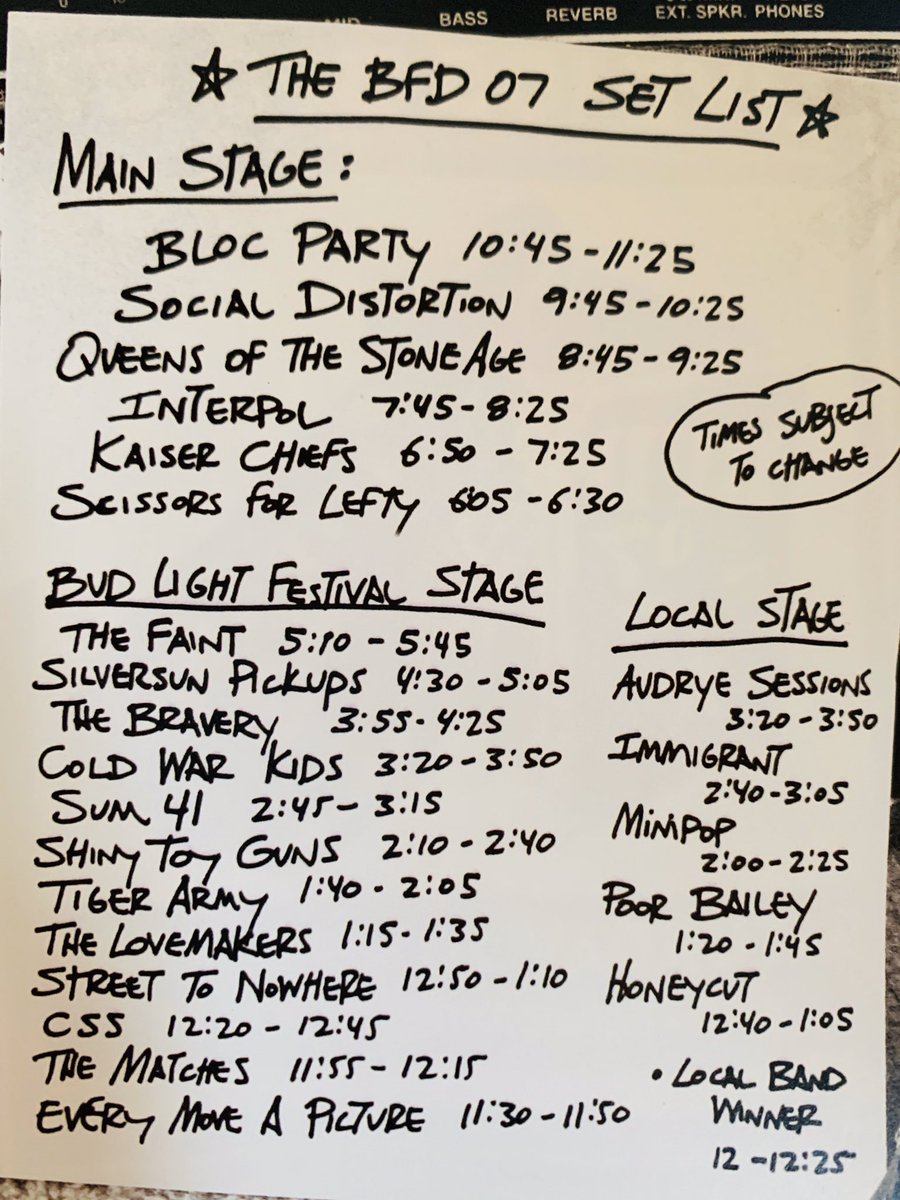 MID BASS REVERB EXT. SPKR. PHONES
☆ THE BFD 07 SET LIST ☆
MAIN STAGE:
BLOC PARTY 10:45-11:25
SOCIAL DISTORTION 9:45-10:25
QUEENS OF THE STONE AGE 8:45-9:25
INTERPOL 7:45-8:25
KAISER CHIEFS 6:50-7:25
SCISSORS FOR LEFTY 6:05-6:30
TIMES SUBJECT
TO CHANGE
BUD LIGHT FESTIVAL STAGE
THE FAINT 5:10-5:45
SILVERSUN PICKUPS 4:30-5:05
THE BRAVERY 3:55-4:25
COLD WAR KIDS 3:20-3:50
SUM 41 2:45-3:15
SHINY TOY GUNS 2:10-2:40
TIGER ARMY 1:40-2:05
THE LOVEMAKERS 1:15-1:35
STREET TO NOWHERE 12:50-1:10
CSS 12:20-12:45
THE MATCHES 11:55-12:15
EVERY MOVE A PICTURE 11:30-11:50
LOCAL STAGE
AUDRYE SESSIONS
3:20-3:50
IMMIGRANT
2:40-3:05
MINIPOP
2:00-2:25
POOR BAILEY
1:20-1:45
HONEYCUT
12:40-1:05
• LOCAL BAND
WINNER
12-12:25